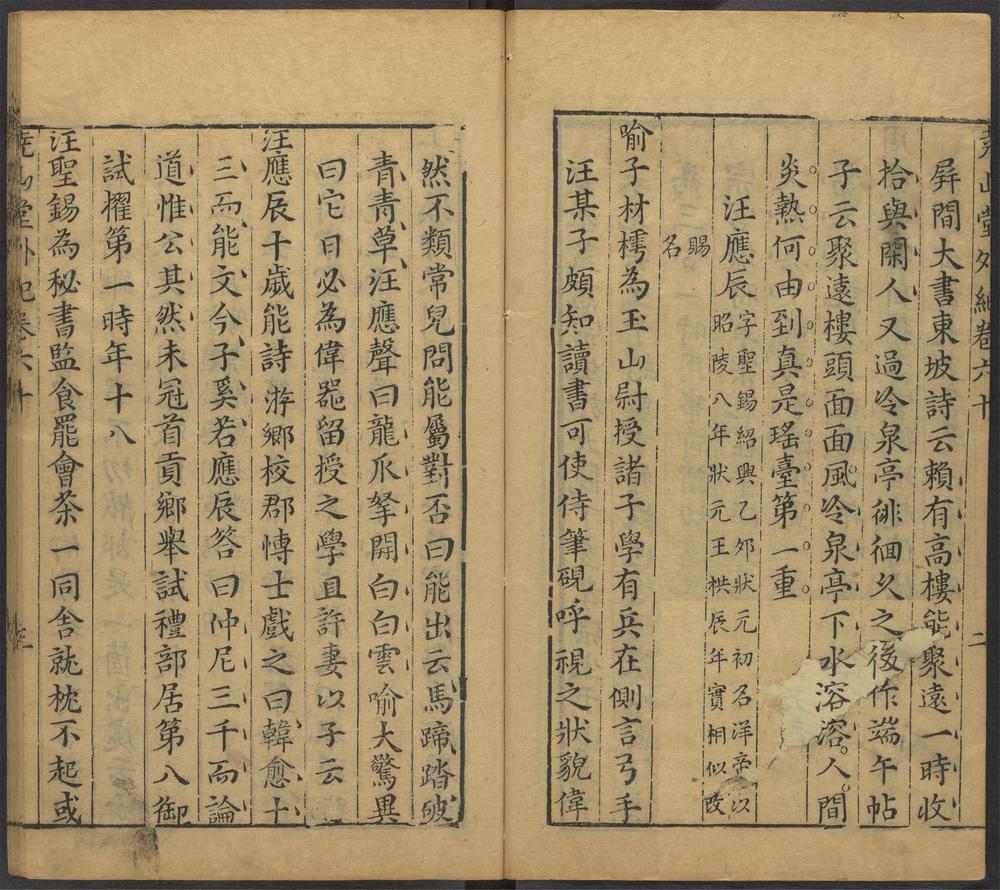 堯山堂外紀卷六十
二
屛間大書東坡詩云賴有高樓能聚遠一時收
拾與閑人又過冷泉亭徘徊久之後作端午帖
子云聚遠樓頭面面風冷泉亭下水溶溶人間
炎熱何由到真是瑤臺第一重
汪應辰字聖錫紹興乙卯狀元初名洋帝以
昭陵八年狀元王拱辰年實相似改
賜
名
喻子材樗為玉山尉授諸子學有兵在側言弓手
汪某子頗知讀書可使侍筆硯呼視之狀貌偉
然不類常兒問能屬對否曰能出云馬蹄踏破
青青草汪應聲曰龍爪拏開白白雲喻大驚異
曰它日必為偉器留授之學且許妻以子云
汪應辰十歲能詩游鄉校郡博士戲之曰韓愈十
三而能文今子奚若應辰答曰仲尼三千而論
道惟公其然未冠首貢鄉舉試禮部居第八御
試擢第一時年十八
汪聖錫為秘書監食罷會茶一同舍就枕不起或
堯山堂外紀卷六十